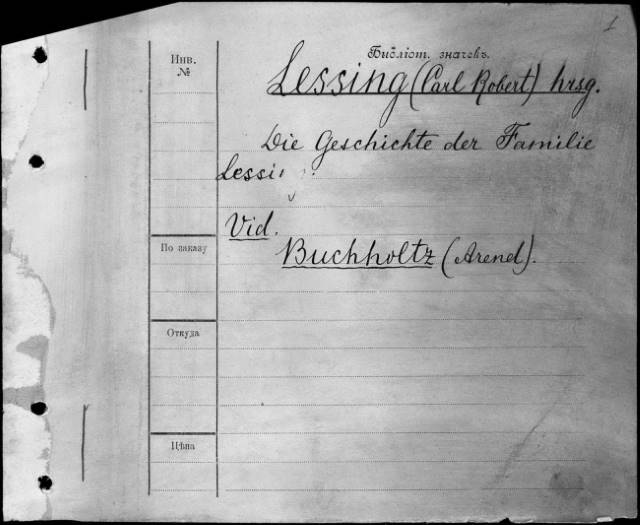 1
Библіот. значекъ.
Инв.
№
Lessing (Carl Robert) hrsg.
Die Geschichte der Familie
Lessi
Vid.
Buchholtz (Arend).
По заказу
Откуда
Цѣна